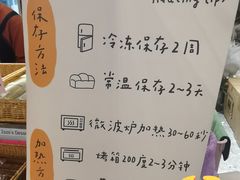 Heating tips
保存方法
冷冻保存2周
常温保存2~3天
加热方
微波炉加热30~60秒
烤箱200度2~3分钟